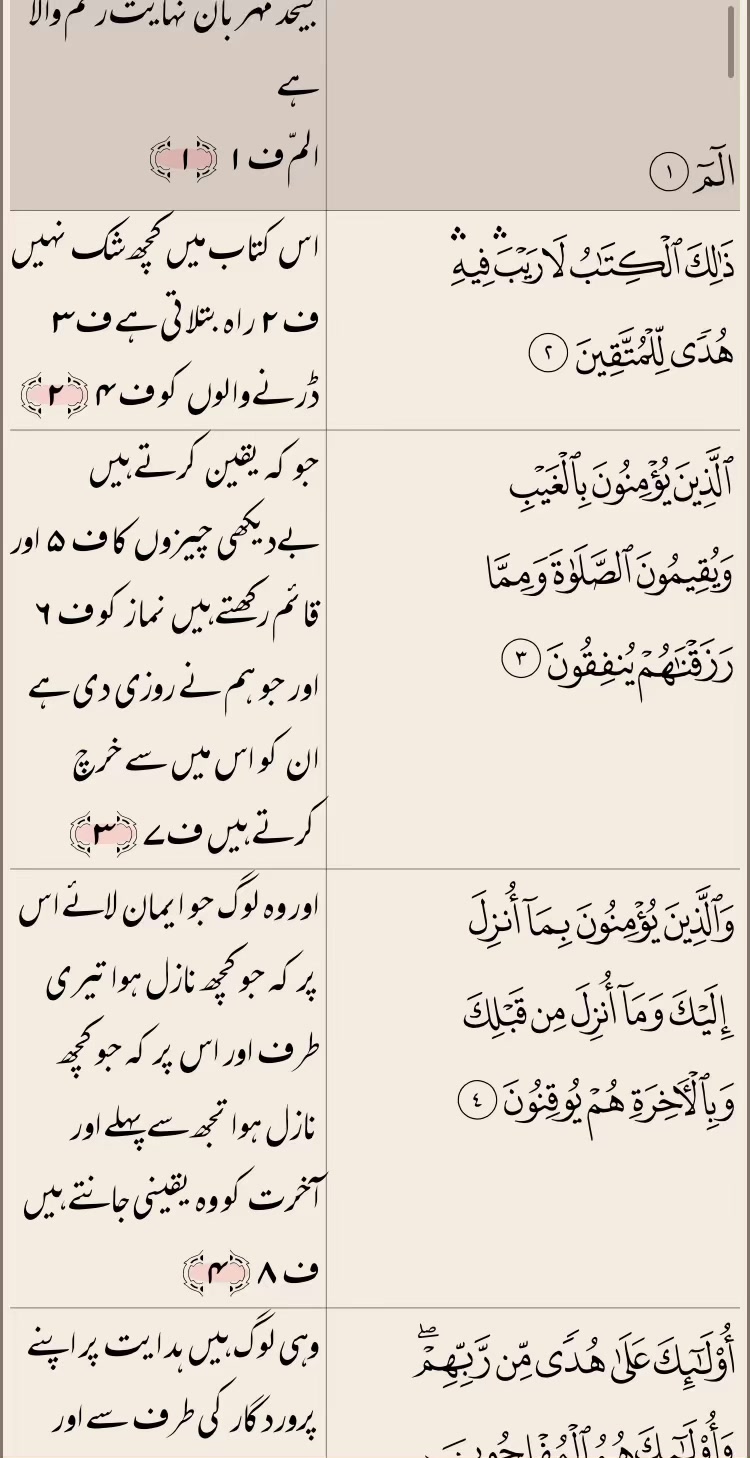 الٓمٓ ١
بیحد مہربان نہایت رحم والا
ہے
المّ ف ١ ﴿١﴾
ذَٰلِكَ ٱلْكِتَٰبُ لَا رَيْبَ ۛ فِيهِ ۛ
هُدًى لِّلْمُتَّقِينَ ٢
اس کتاب میں کچھ شک نہیں
ف ۲ راہ بتلاتی ہے ف ۳
ڈرنے والوں کو ف ۴ ﴿۲﴾
ٱلَّذِينَ يُؤْمِنُونَ بِٱلْغَيْبِ
وَيُقِيمُونَ ٱلصَّلَوٰةَ وَمِمَّا
رَزَقْنَٰهُمْ يُنفِقُونَ ٣
جو کہ یقین کرتے ہیں
بے دیکھی چیزوں کا ف ۵ اور
قائم رکھتے ہیں نماز کو ف ۶
اور جو ہم نے روزی دی ہے
ان کو اس میں سے خرچ
کرتے ہیں ف ۷ ﴿۳﴾
وَٱلَّذِينَ يُؤْمِنُونَ بِمَآ أُنزِلَ
إِلَيْكَ وَمَآ أُنزِلَ مِن قَبْلِكَ
وَبِٱلْءَاخِرَةِ هُمْ يُوقِنُونَ ٤
اور وہ لوگ جو ایمان لائے اس
پر کہ جو کچھ نازل ہوا تیری
طرف اور اس پر کہ جو کچھ
نازل ہوا تجھ سے پہلے اور
آخرت کو وہ یقینی جانتے ہیں
ف ۸ ﴿۴﴾
أُو۟لَٰٓئِكَ عَلَىٰ هُدًى مِّن رَّبِّهِمْ ۖ
وَأُو۟لَٰٓئِكَ هُمُ ٱلْمُفْلِحُونَ
وہی لوگ ہیں ہدایت پر اپنے
پروردگار کی طرف سے اور